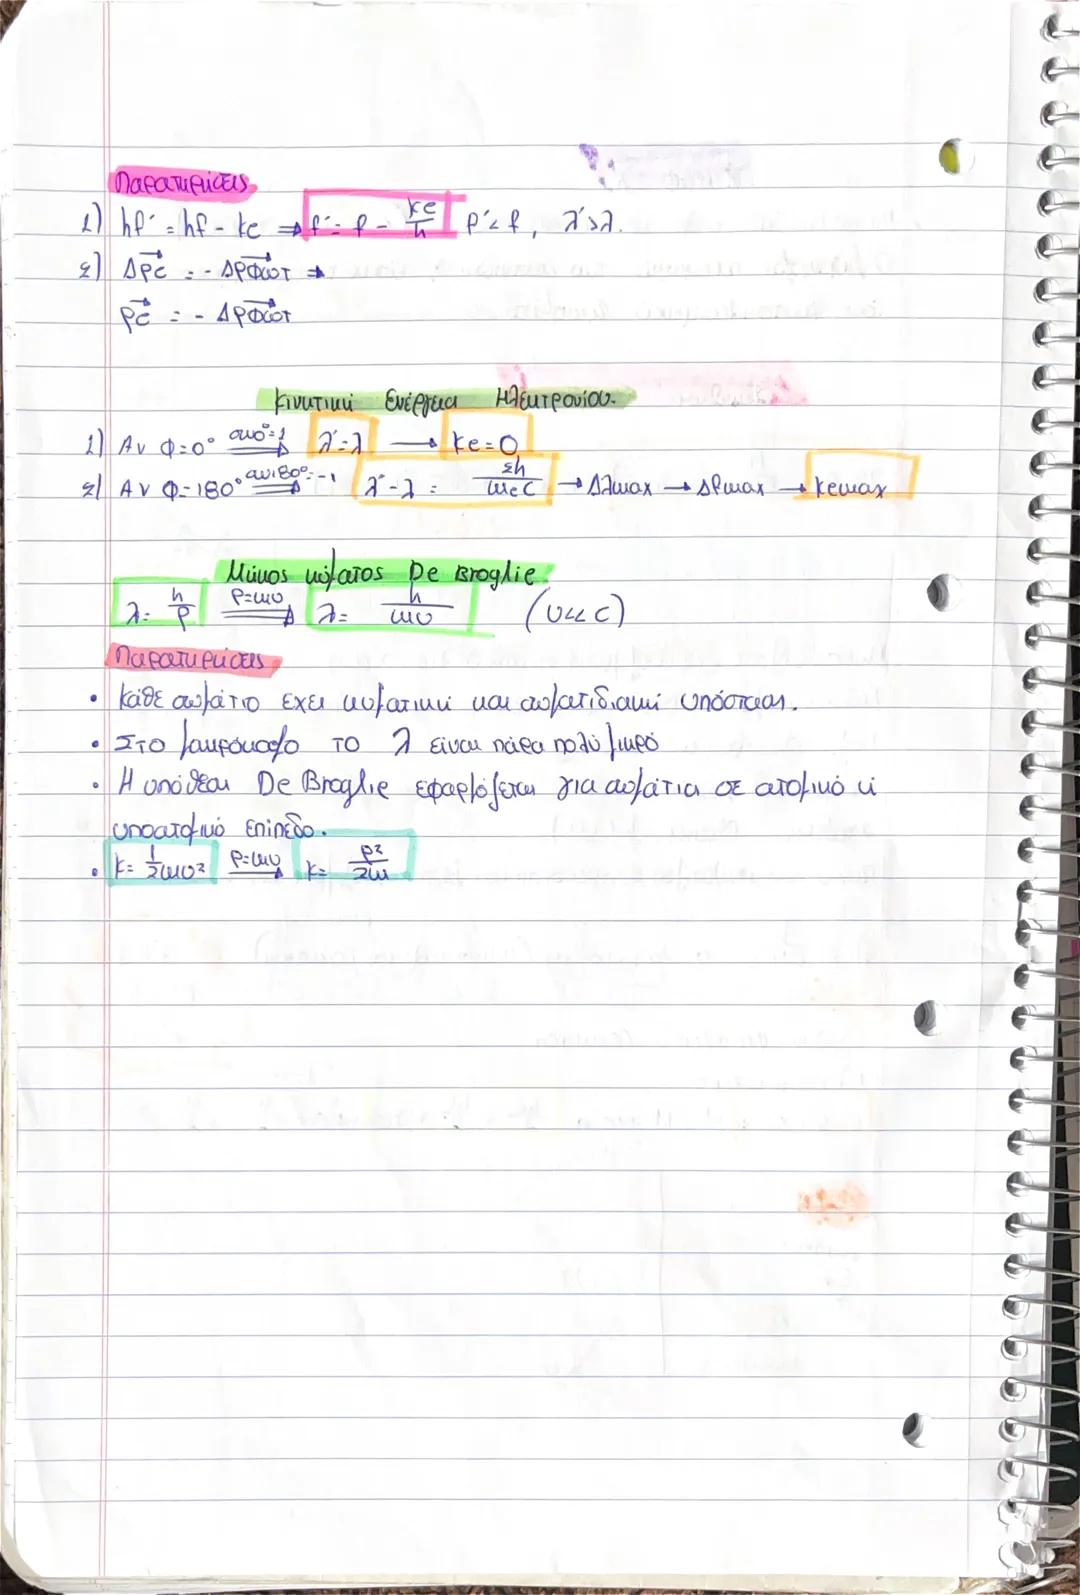 Παρατηρήσεις
1) hf' = hf - Ke ⇒ f' = f - Ke/h f' < f, λ' > λ.
2) Δpe = - Δpφωτ ⇒
pe = - Δpφωτ
Κινητική Ενέργεια Ηλεκτρονίου.
1) Αν φ=0° συν0°=1 ⇒ λ'=λ → Ke=0
2) Αν φ=180° συν180°=-1 ⇒ λ'-λ = 2h/meC → Δλmax → Δfmax → Kemax
Μήκος κύματος De Broglie.
λ = h/p p=mυ ⇒ λ = h/mυ (υ<<C)
Παρατηρήσεις
• Κάθε σωμάτιο έχει κυματική και σωματιδιακή υπόσταση.
• Στο μακρόκοσμο το λ είναι πάρα πολύ μικρό
• Η υπόθεση De Broglie εφαρμόζεται για σωμάτια σε ατομικό ή
υποατομικό επίπεδο.
• K = 1/2mυ² p=mυ ⇒ K = p²/2m